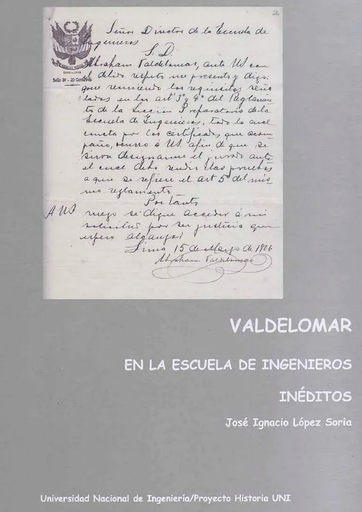 Señor Director de la Escuela de
Ingenieros
S. D.
Abraham Valdelomar, ante US con
el debido respeto me presento y digo:
que reuniendo los requisitos seña
lados en los art 3° y 4° del Reglamen
to de la Sección Preparatoria de la
Escuela de Ingenieros, todo lo cual
consta por los certificados que acom
paño, ocurro a US afin d que se
sirva designarme el jurado ante
el cual debo rendir las pruebas
a que se refiere el art 5° del mis
mo reglamento.
Por tanto
A US
ruego se digne acceder á mi
solicitud por ser justicia que
espero alcanzar
Lima 15 de Marzo de 1906
Abraham Valdelomar
VALDELOMAR
EN LA ESCUELA DE INGENIEROS
INÉDITOS
José Ignacio López Soria
Universidad Nacional de Ingeniería/Proyecto Historia UNI